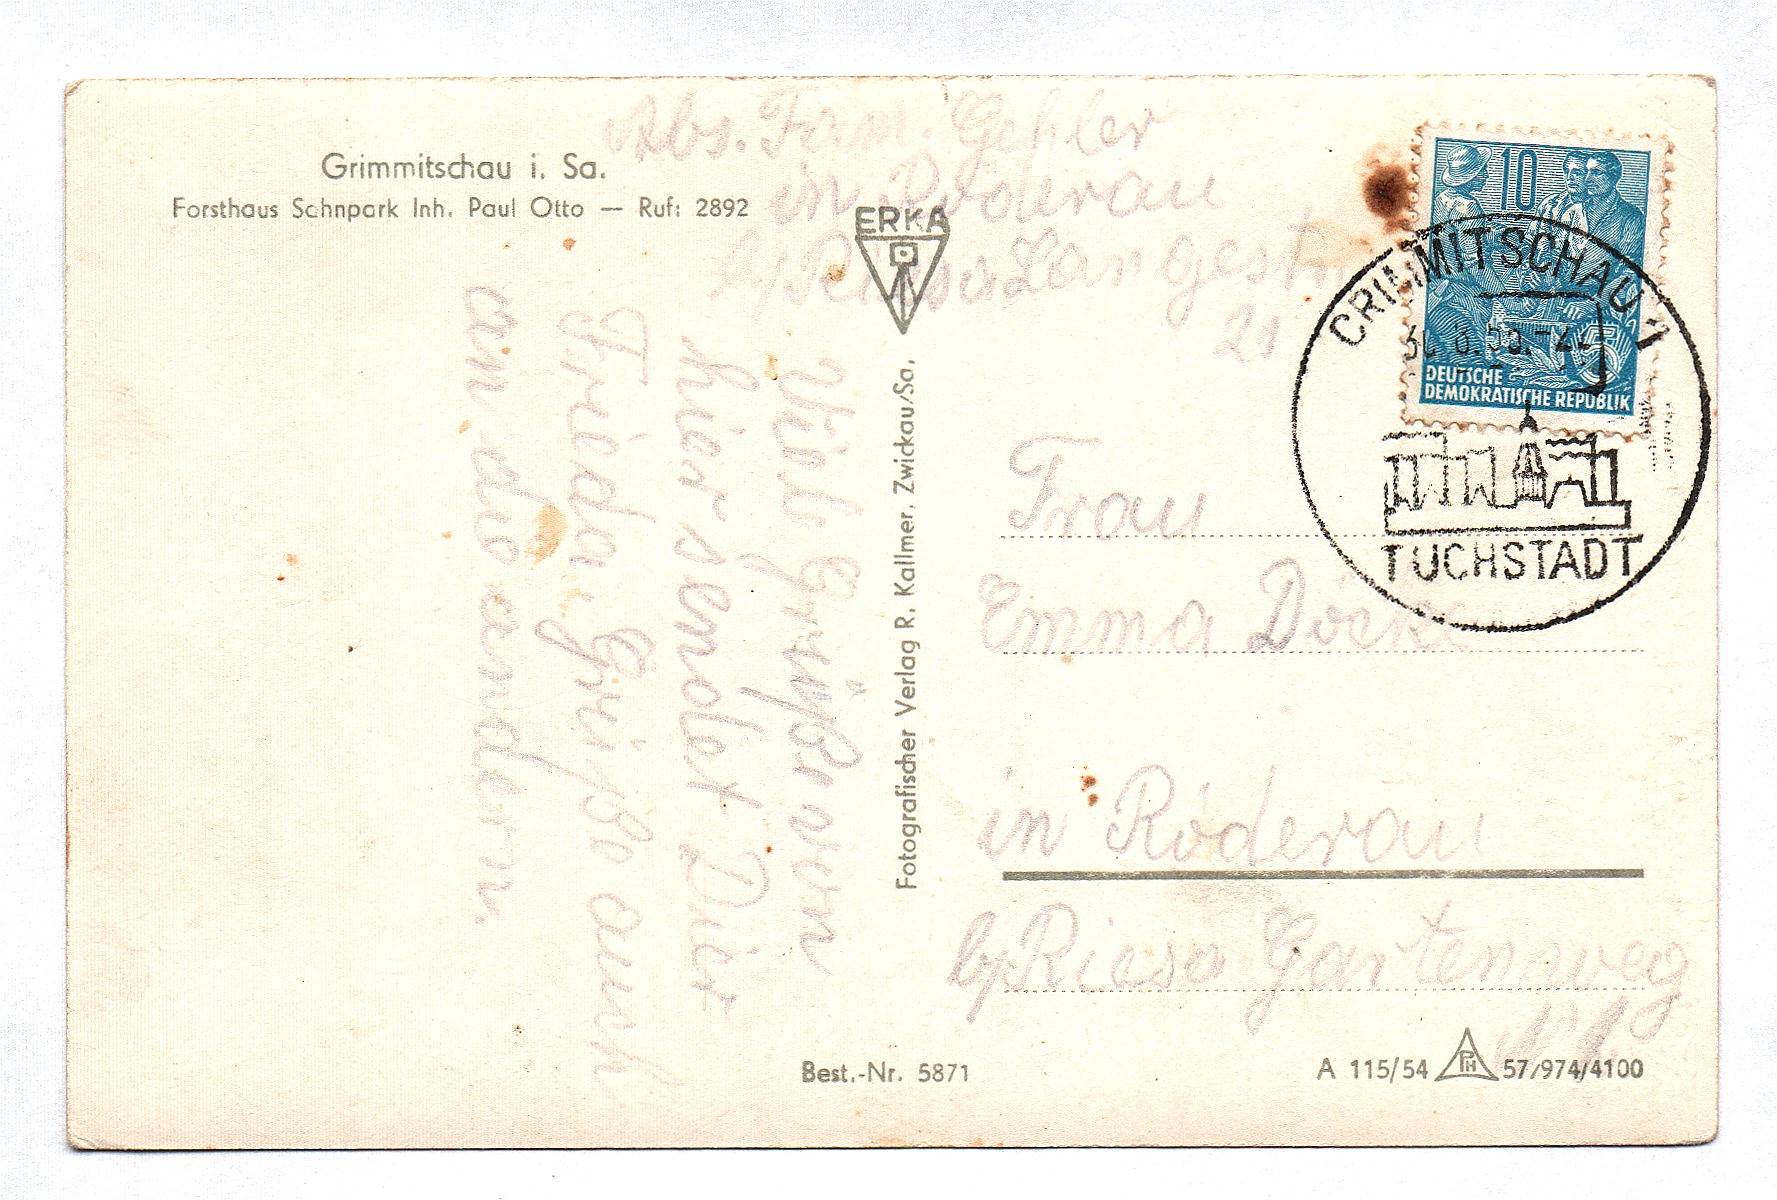 Grimmitschau i. Sa.
Forsthaus Sahnpark Inh. Paul Otto — Ruf: 2892
Abs. Firm. Geßler
in Röderau
by Riesa Langestr
21
ERKA
Fotografischer Verlag R. Kallmer, Zwickau/Sa.
Viele Grüße von
hier sendet Dier
Frieda, Griße auch
an die andern.
10
5
DEUTSCHE
DEMOKRATISCHE REPUBLIK
CRIMMITSCHAU 1
TUCHSTADT
Frau
Emma
in Röderau
by Riesa Gartenweg
Best.-Nr. 5871
A 115/54 PH 57/974/4100